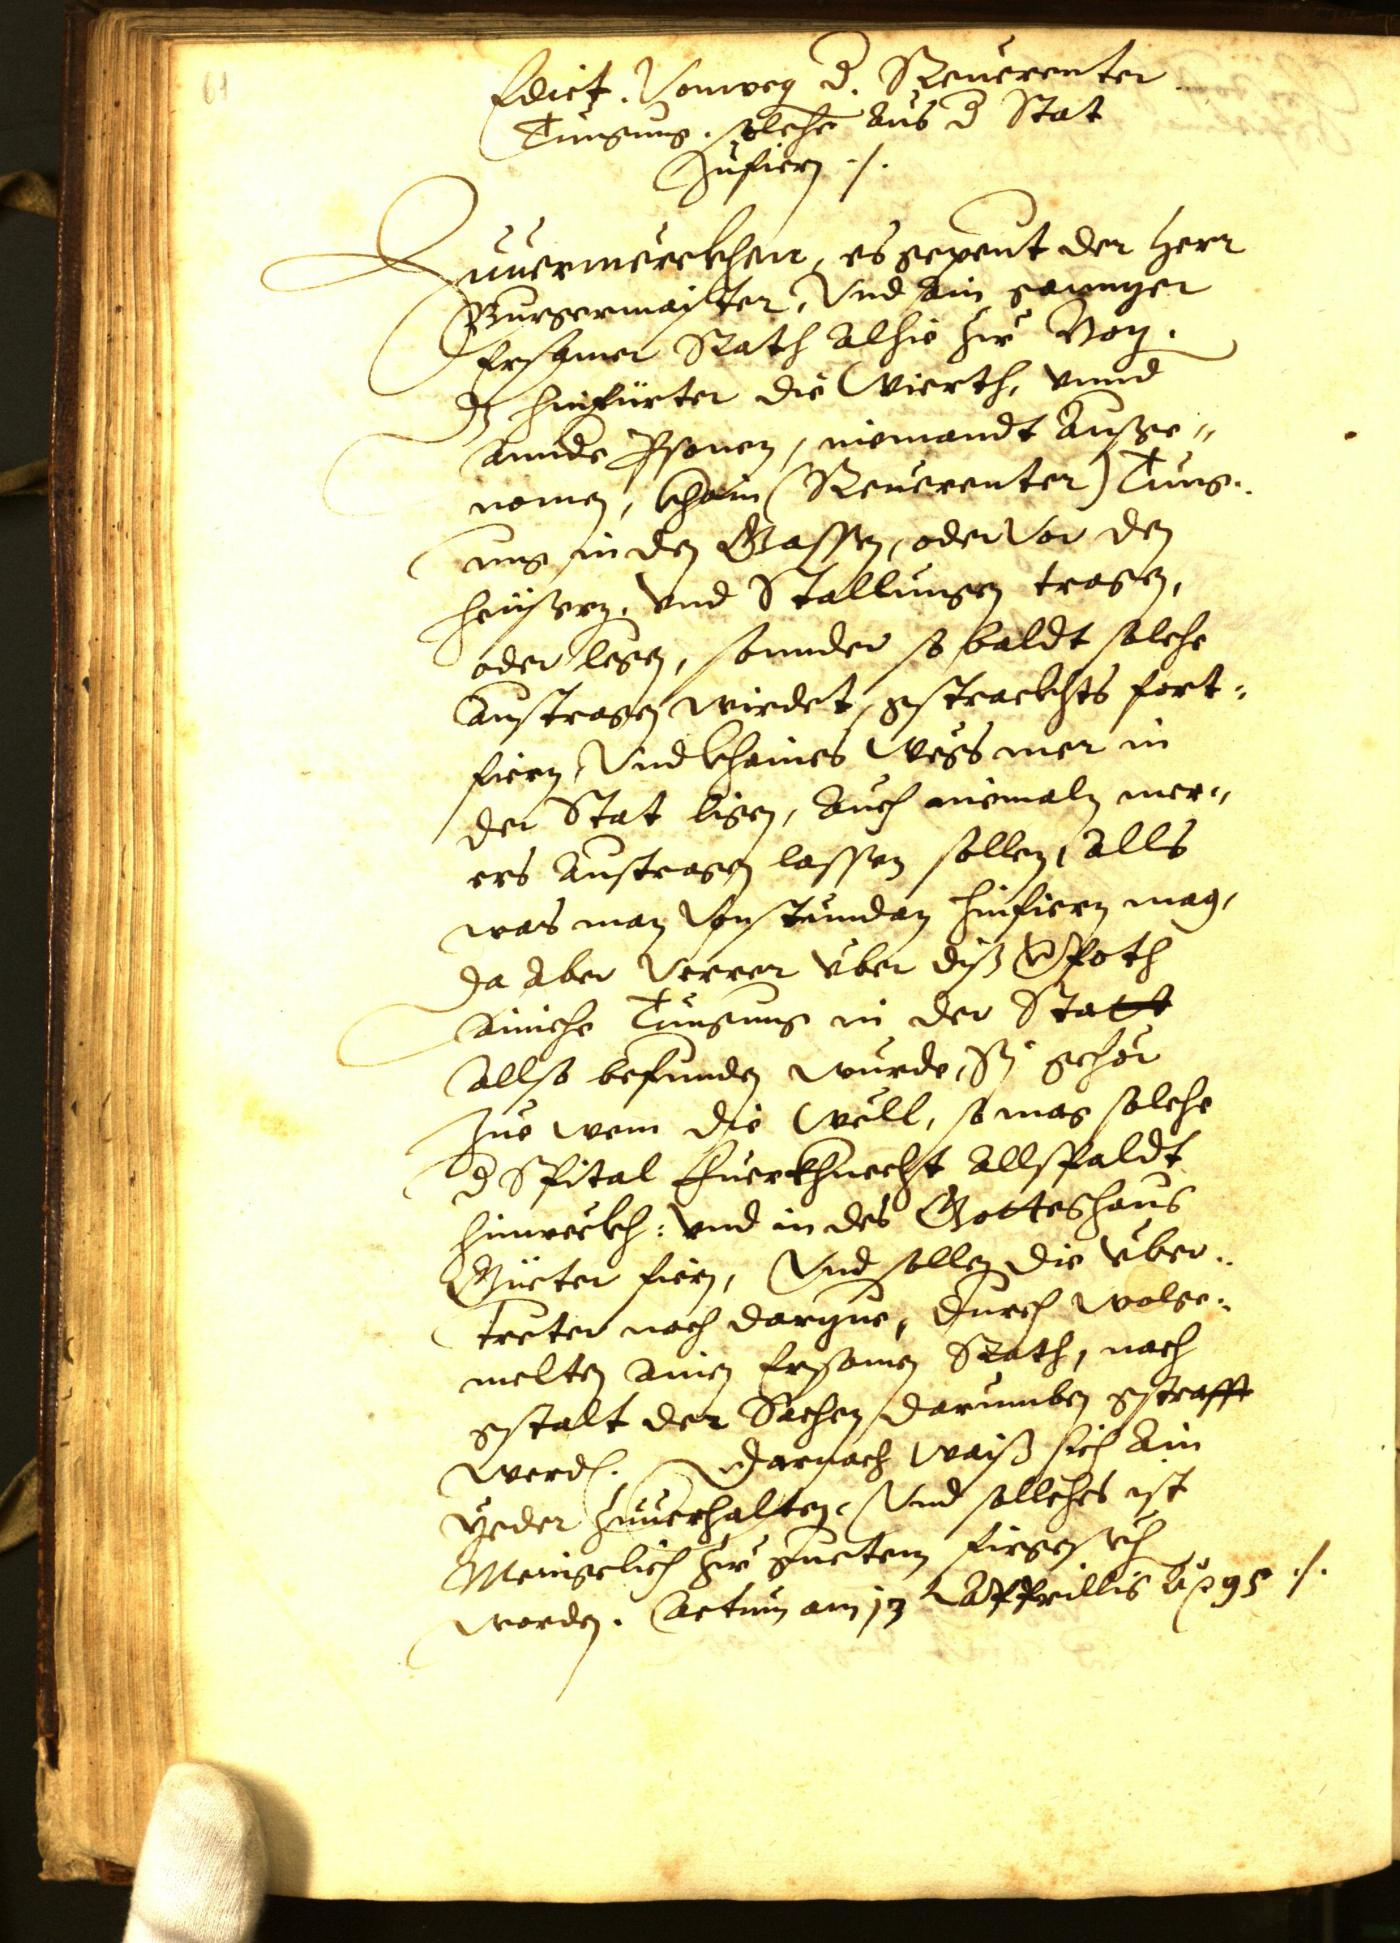 61
Edict. Vonweg d. Reuerenter
Tungung. solche aus d Stat
Zufiern ./.
Zuuermerckhen, es gepeut der Herr
Burgermaister, Vnd ain gannzer
Ersamer Rath alhie zw Bozn.
dz hinfürter die Wierth, vnnd
annde Psonen, niemandt Ausge„
nomen, khain (Reuerenter) Tung„
ung in den Gassen, oder Vor den
heüsern, vnd Stallungen tragen,
oder legen, sonnder so baldt solche
Austragen wirdet, gstrackhts fort„
fiern, Vnd khaines Wegs mer in
der Stat ligen, Auch niemaln mer„
ers Austragen lassen sollen, alls
was man Von stundan hinfiern mag,
da aber Verrer vber diß Vpoth
ainiche Tungung in der Statt
allso befunden wurde, Sy gehör
Zue wem die Wëll, so mag solche
d Spital Fuerkhnecht allspaldt
hinweckh: vnd in des Gotteshaus
Güeter fiern, Vnd sollen die vber„
treter noch darzue, durch wolge„
melten ainen Ersamen Rath, nach
gstalt der Sachen darumben gstrafft
werd. Darnach waiß sich Ain
yeder zuuerhalten, Vnd sollches ist
Menigelich zw guetem firgesech
worden. Actum am 13 Apprillis Ao 95 ./.